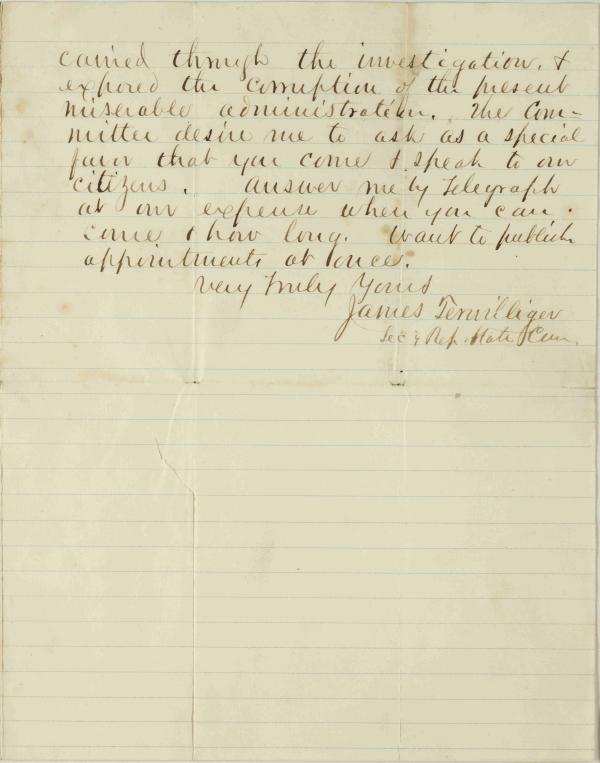 carried through the investigation, &
exposed the corruption of the present
miserable administration. The Com-
mittee desire me to ask as a special
favor that you come & speak to our
citizens. Answer me by Telegraph
at our expense when you can
come & how long. Want to publish
appointments at once.
Very Truly Yours
James Terwilliger
Sec'y Rep. State Com.